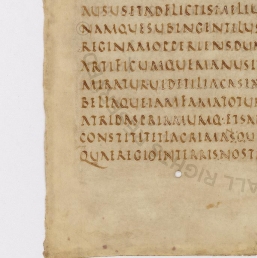 AUSUSETADFLICTISMELIU
NAMQUESUBINGENTILUS
REGINAMOPPERIENSDUM
ARTIFICUMQUEMANUSI
MIRATURUIDETILIACASEX
BELLAQUEIAMFAMATOTU
ATRIDASPRIAMUMQ·ETSA
CONSTITITETLACRIMA
QUAEREGIOINTERRISNOST
ALL RIGHTS